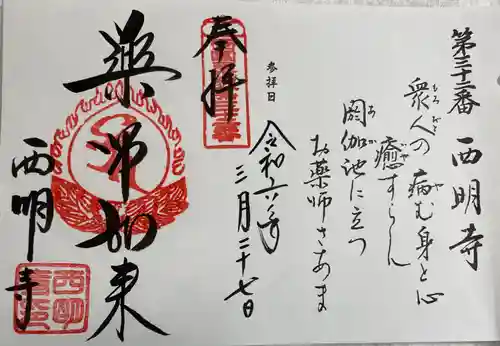 第三十三番 西明寺
衆人の 病む身と心
もろ びと や
癒すらん
閼伽池に立つ
あ か
お薬師さあま
参拝日
令和六年
三月二十七日
奉拝
薬師如来
西明寺